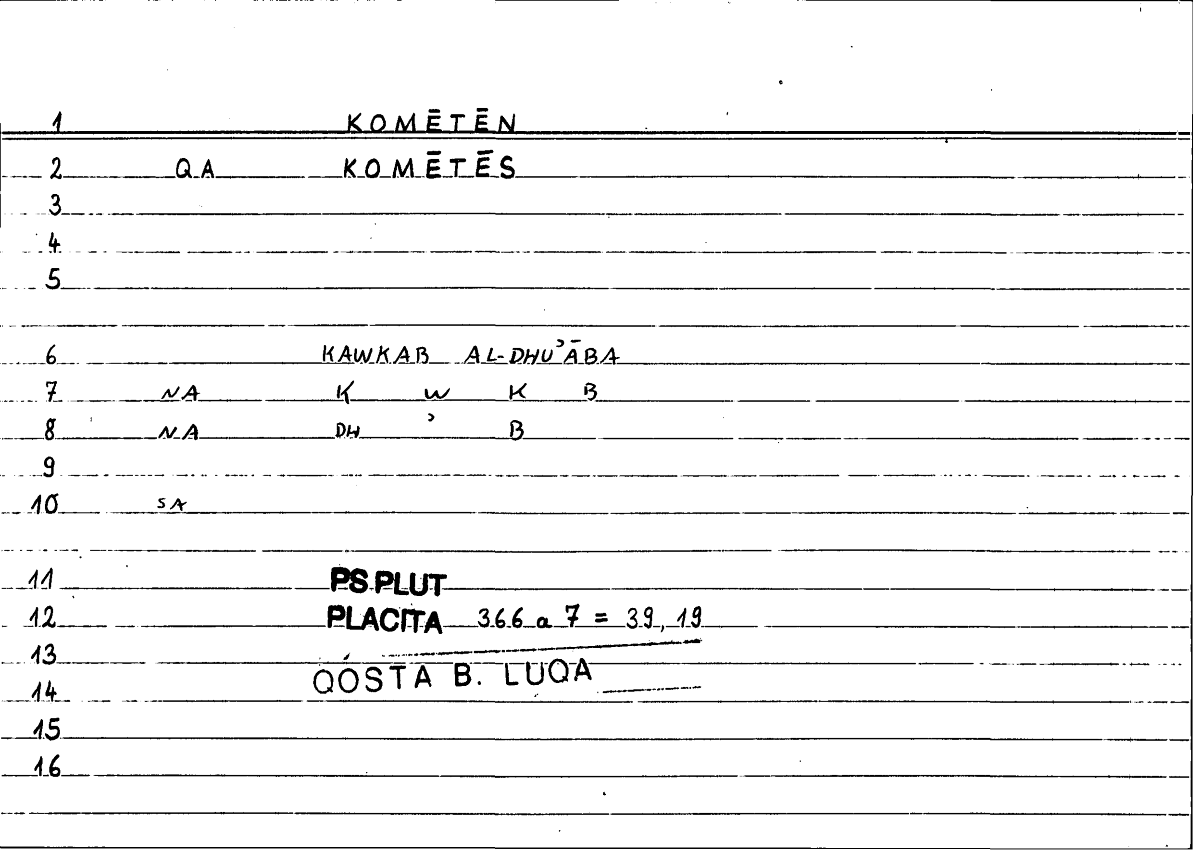 1 KOMĒTĒN
2 QA KOMĒTĒS
3
4
5
6 KAWKAB AL-DHUʾĀBA
7 NA K W K B
8 NA DH ʾ B
9
10 SA
11 PS.PLUT
12 PLACITA 366 a 7 = 39, 19
13
QOSTA B. LUQA
14
15
16